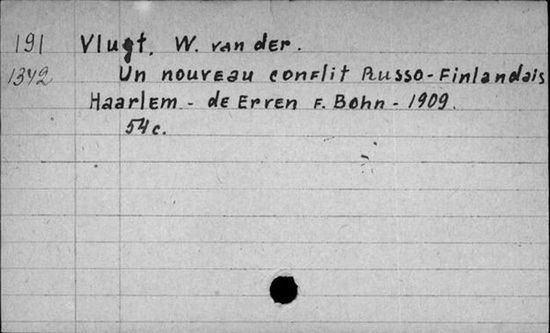 191 Vlugt, W. van der.
1342 Un nouveau conflit Russo-Finlandais
Haarlem - de Erven F. Bohn - 1909.
54 c.